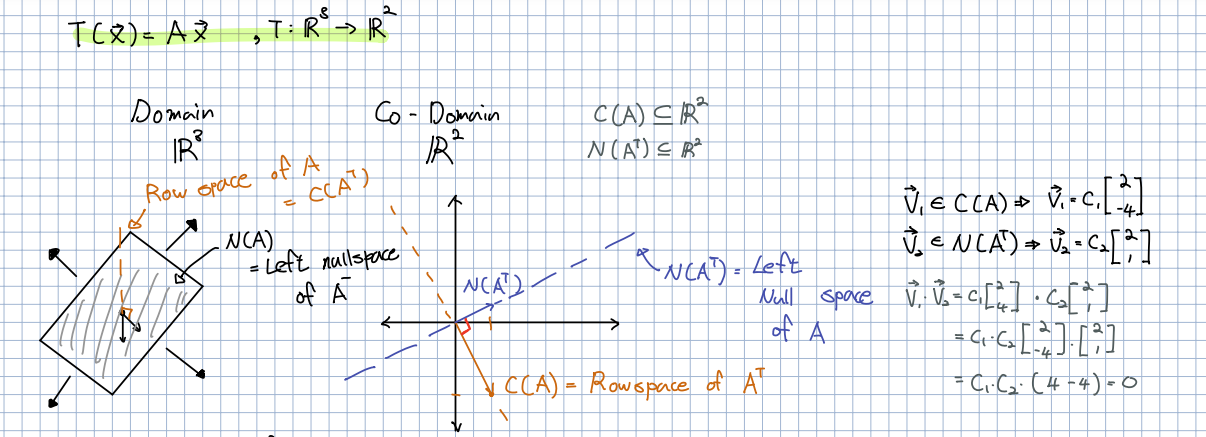 T(x⃗) = A x⃗ , T : ℝ³ → ℝ²
Domain
ℝ³
Co - Domain
ℝ²
C(A) ⊆ ℝ²
N(Aᵀ) ⊆ ℝ²
Row space of A
= C(Aᵀ)
N(A)
= Left nullspace
of Aᵀ
N(Aᵀ)
N(Aᵀ) = Left
Null space
of A
C(A) = Rowspace of Aᵀ
V⃗₁ ∈ C(A) ⇒ V⃗₁ = C₁ [2 -4]
V⃗₂ ∈ N(Aᵀ) ⇒ V⃗₂ = C₂ [2 1]
V⃗₁ · V⃗₂ = C₁ [2 -4] · C₂ [2 1]
= C₁ · C₂ [2 -4] · [2 1]
= C₁ · C₂ · (4 - 4) = 0